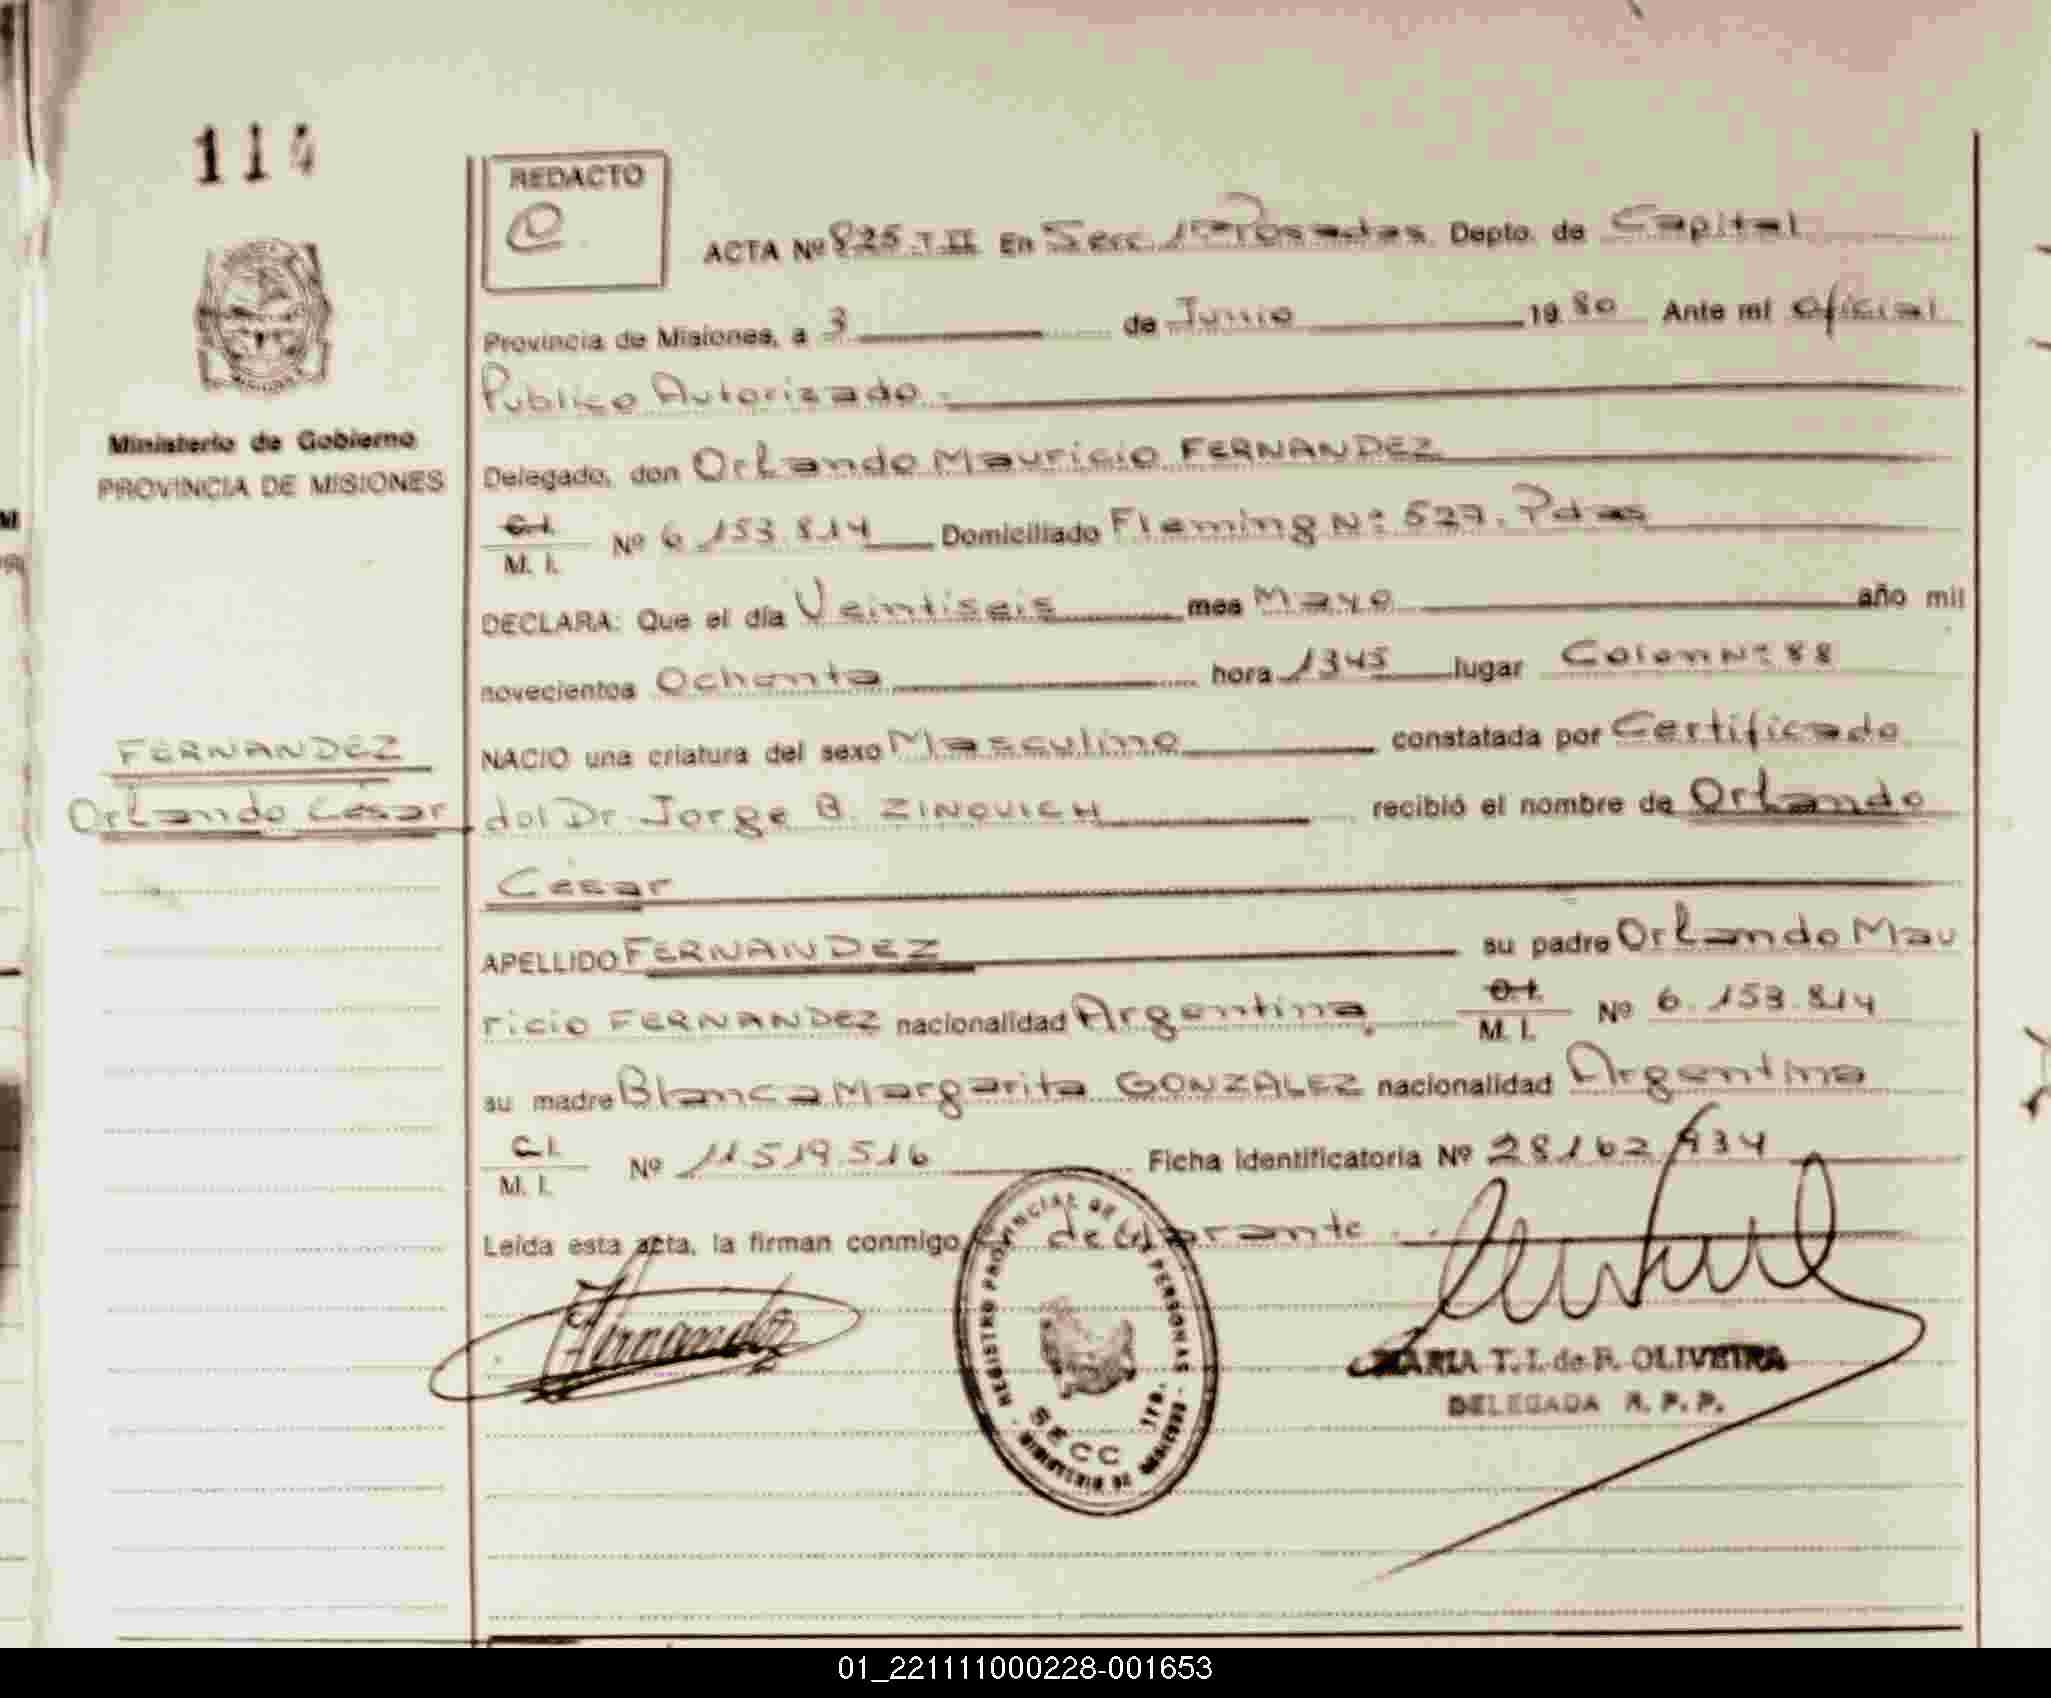 114
REDACTO
ACTA Nº 825. T II En Secc. 1ª Posadas. Depto. de Capital
Provincia de Misiones, a 3 de Junio 19 80 Ante mí Oficial
Público Autorizado.
Ministerio de Gobierno
PROVINCIA DE MISIONES
Delegado, don Orlando Mauricio FERNANDEZ
C.I.
M. I. Nº 6.153.814 Domiciliado Fleming Nº 527. Pdas
DECLARA: Que el día Veintiseis mes Mayo año mil
novecientos Ochenta hora 1345 lugar Colon Nº 88
NACIO una criatura del sexo Masculino constatada por Certificado
FERNANDEZ
Orlando César
del Dr. Jorge B. ZINOVICH recibió el nombre de Orlando
César
APELLIDO FERNANDEZ su padre Orlando Mau
ricio FERNANDEZ nacionalidad Argentina. C.I.
M. I. Nº 6.153.814
su madre Blanca Margarita GONZALEZ nacionalidad Argentina
C.I.
M. I. Nº 11.519.516 Ficha identificatoria Nº 28162.934
Leída esta acta, la firman conmigo, declarante.
Fernandez
REGISTRO PROVINCIAL DE LAS PERSONAS
SECC 1RA.
MARIA T. I. de R. OLIVEIRA
DELEGADA R. P. P.
01_221111000228-001653